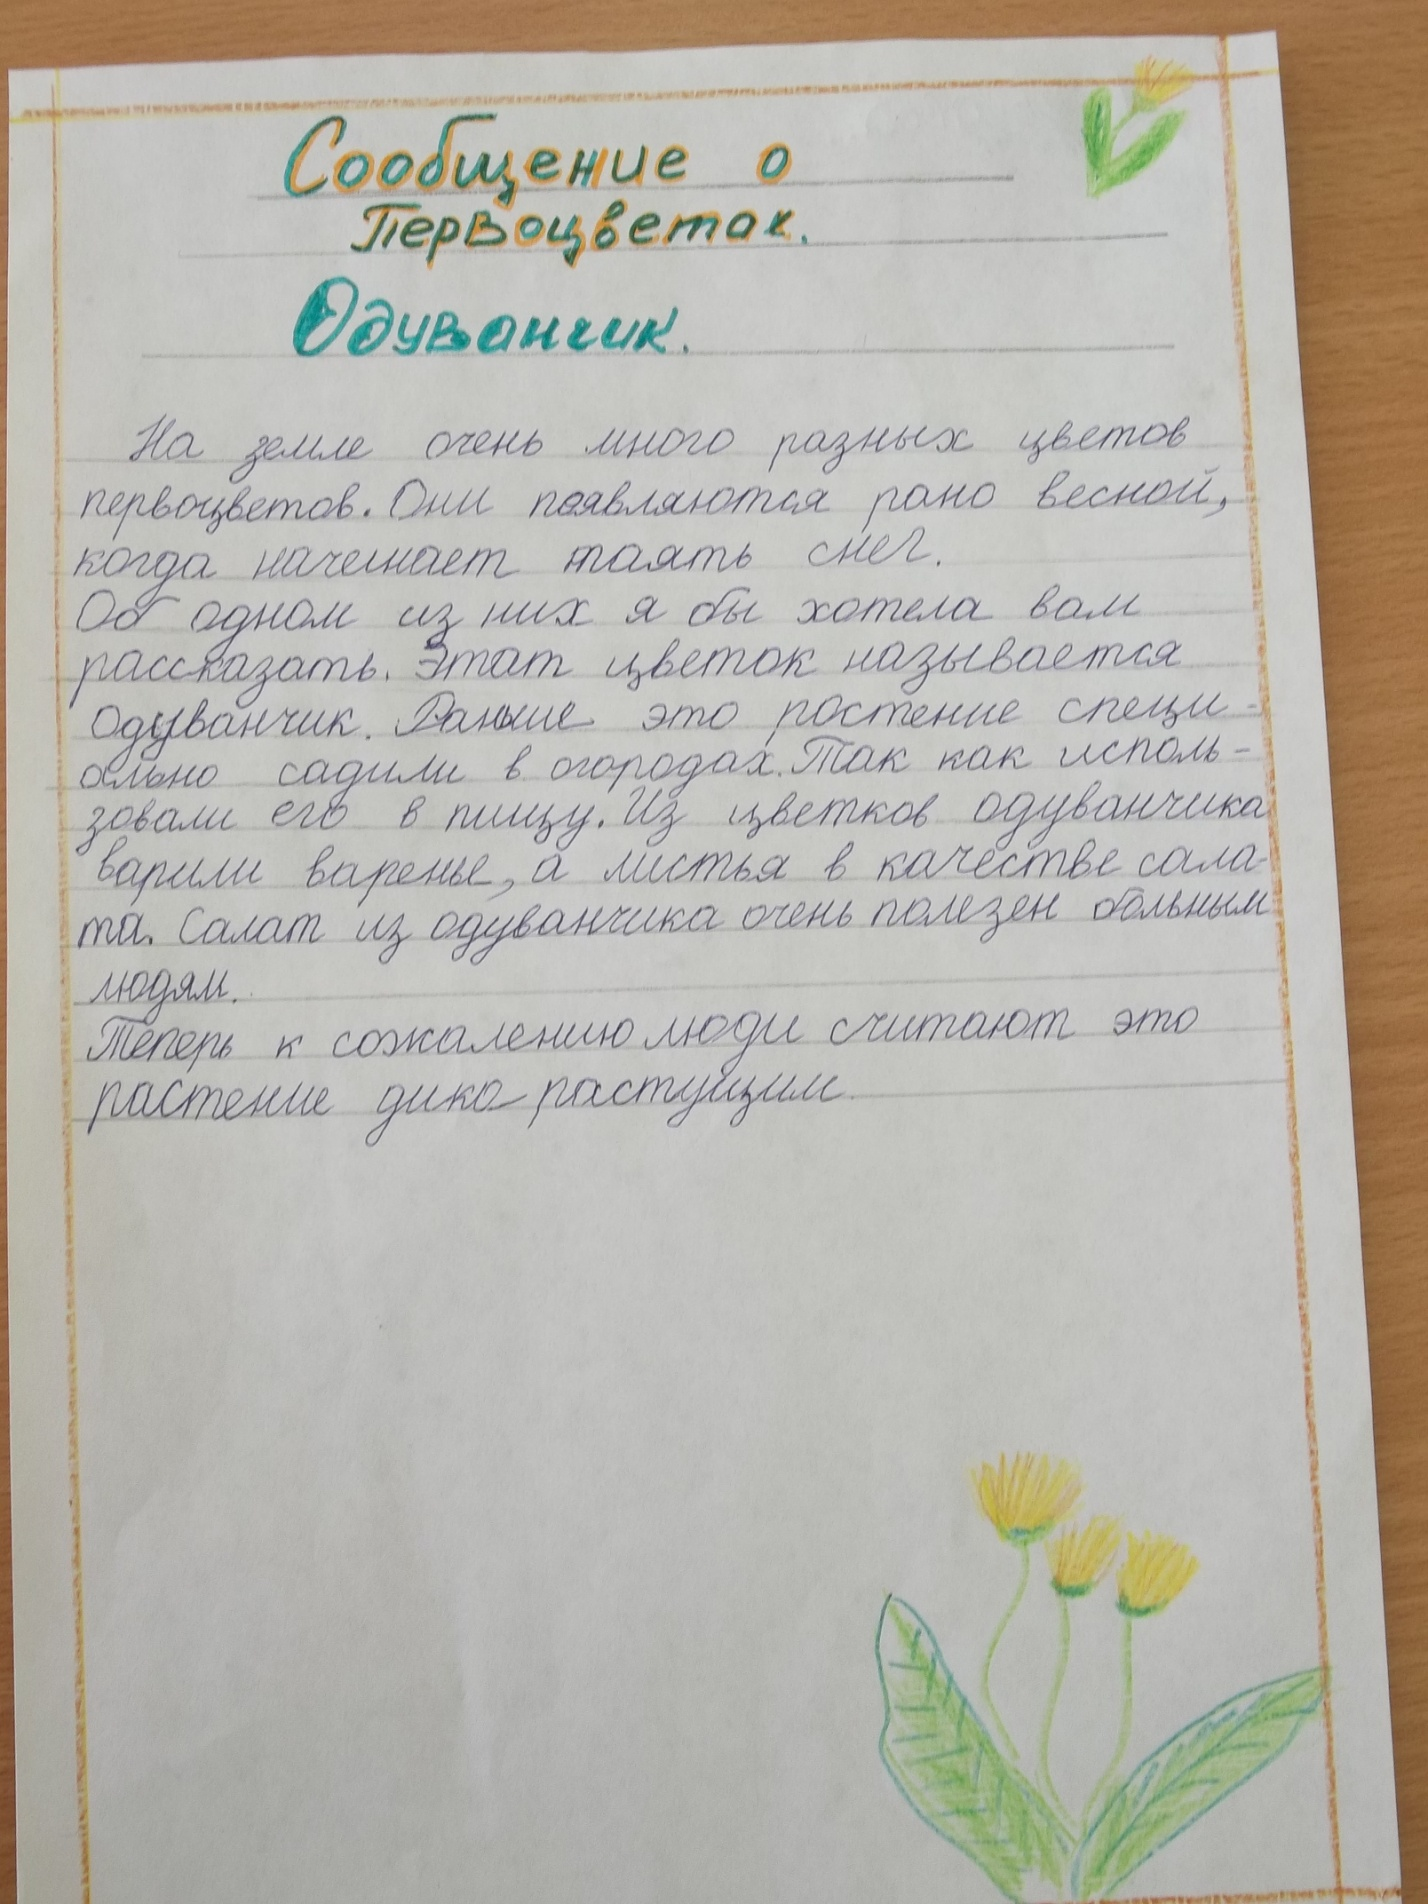 Сообщение о
Первоцветах.
Одуванчик.
На земле очень много разных цветов
первоцветов. Они появляются рано весной,
когда начинает таять снег.
Об одном из них я бы хотела вам
рассказать. Этат цветок называется
одуванчик. Раньше это ростение специ-
ально садили в огородах. Так как исполь-
зовали его в пищу. Из цветков одуванчика
варили варенье, а листья в качестве сала-
та. Салат из одуванчика очень полезен больным
людям.
Теперь к сожалению люди считают это
растение дико растущим.